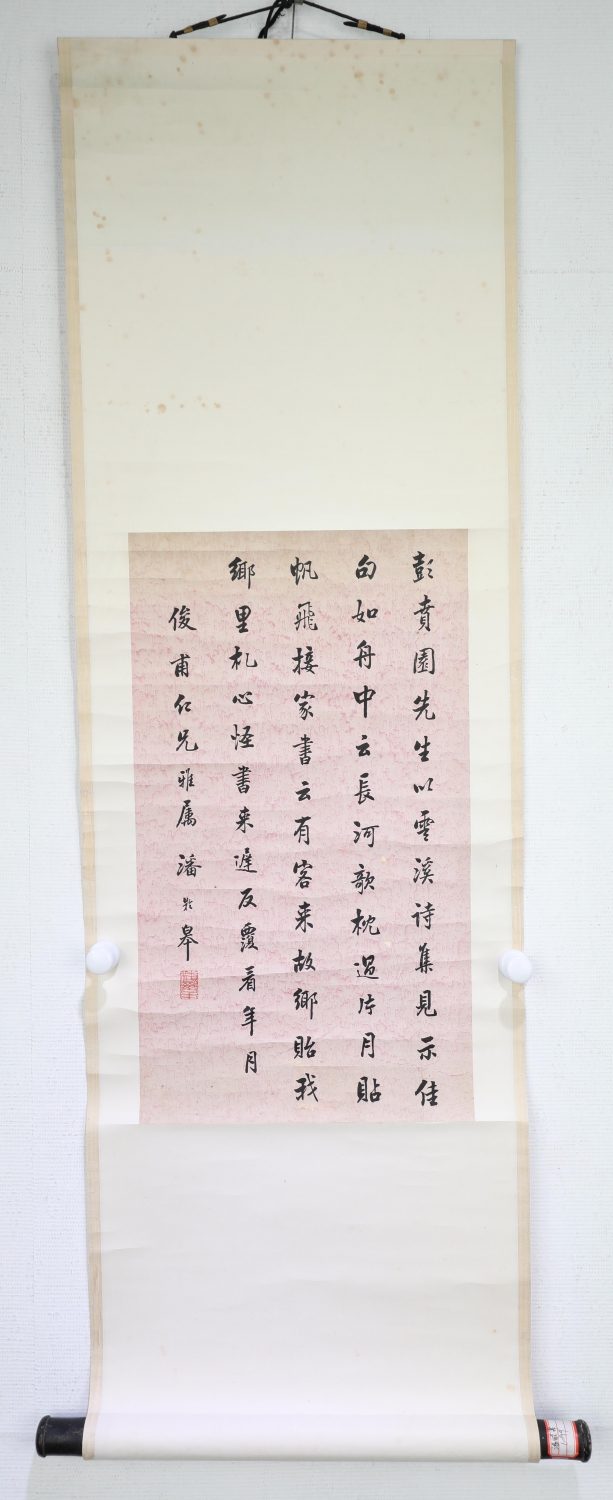 彭賁園先生以雲溪诗集見示佳
句如舟中云長河歌枕過片月貼
帆飛接家書云有客来故鄉貽我
鄉里札心怪書来遲反覆看年月
俊甫仁兄雅属 潘龄皋